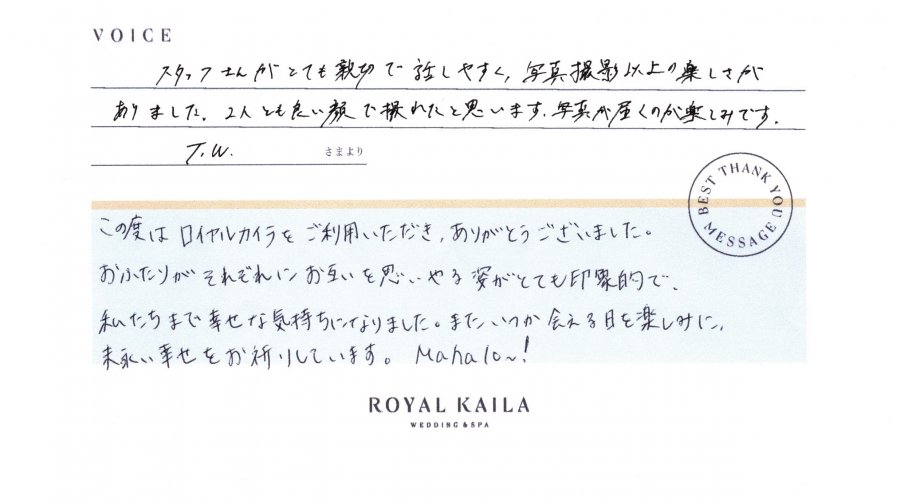 VOICE
スタッフさんがとても親切で話しやすく、写真撮影以上の楽しさが
ありました。2人とも良い顔で撮れたと思います。写真が届くのが楽しみです。
T.W. さまより
BEST THANK YOU MESSAGE
この度はロイヤルカイラをご利用いただき、ありがとうございました。
おふたりがそれぞれにお互いを思いやる姿がとても印象的で、
私たちまで幸せな気持ちになりました。またいつか会える日を楽しみに、
末永い幸せをお祈りしています。 Mahalo~!
ROYAL KAILA
WEDDING & SPA